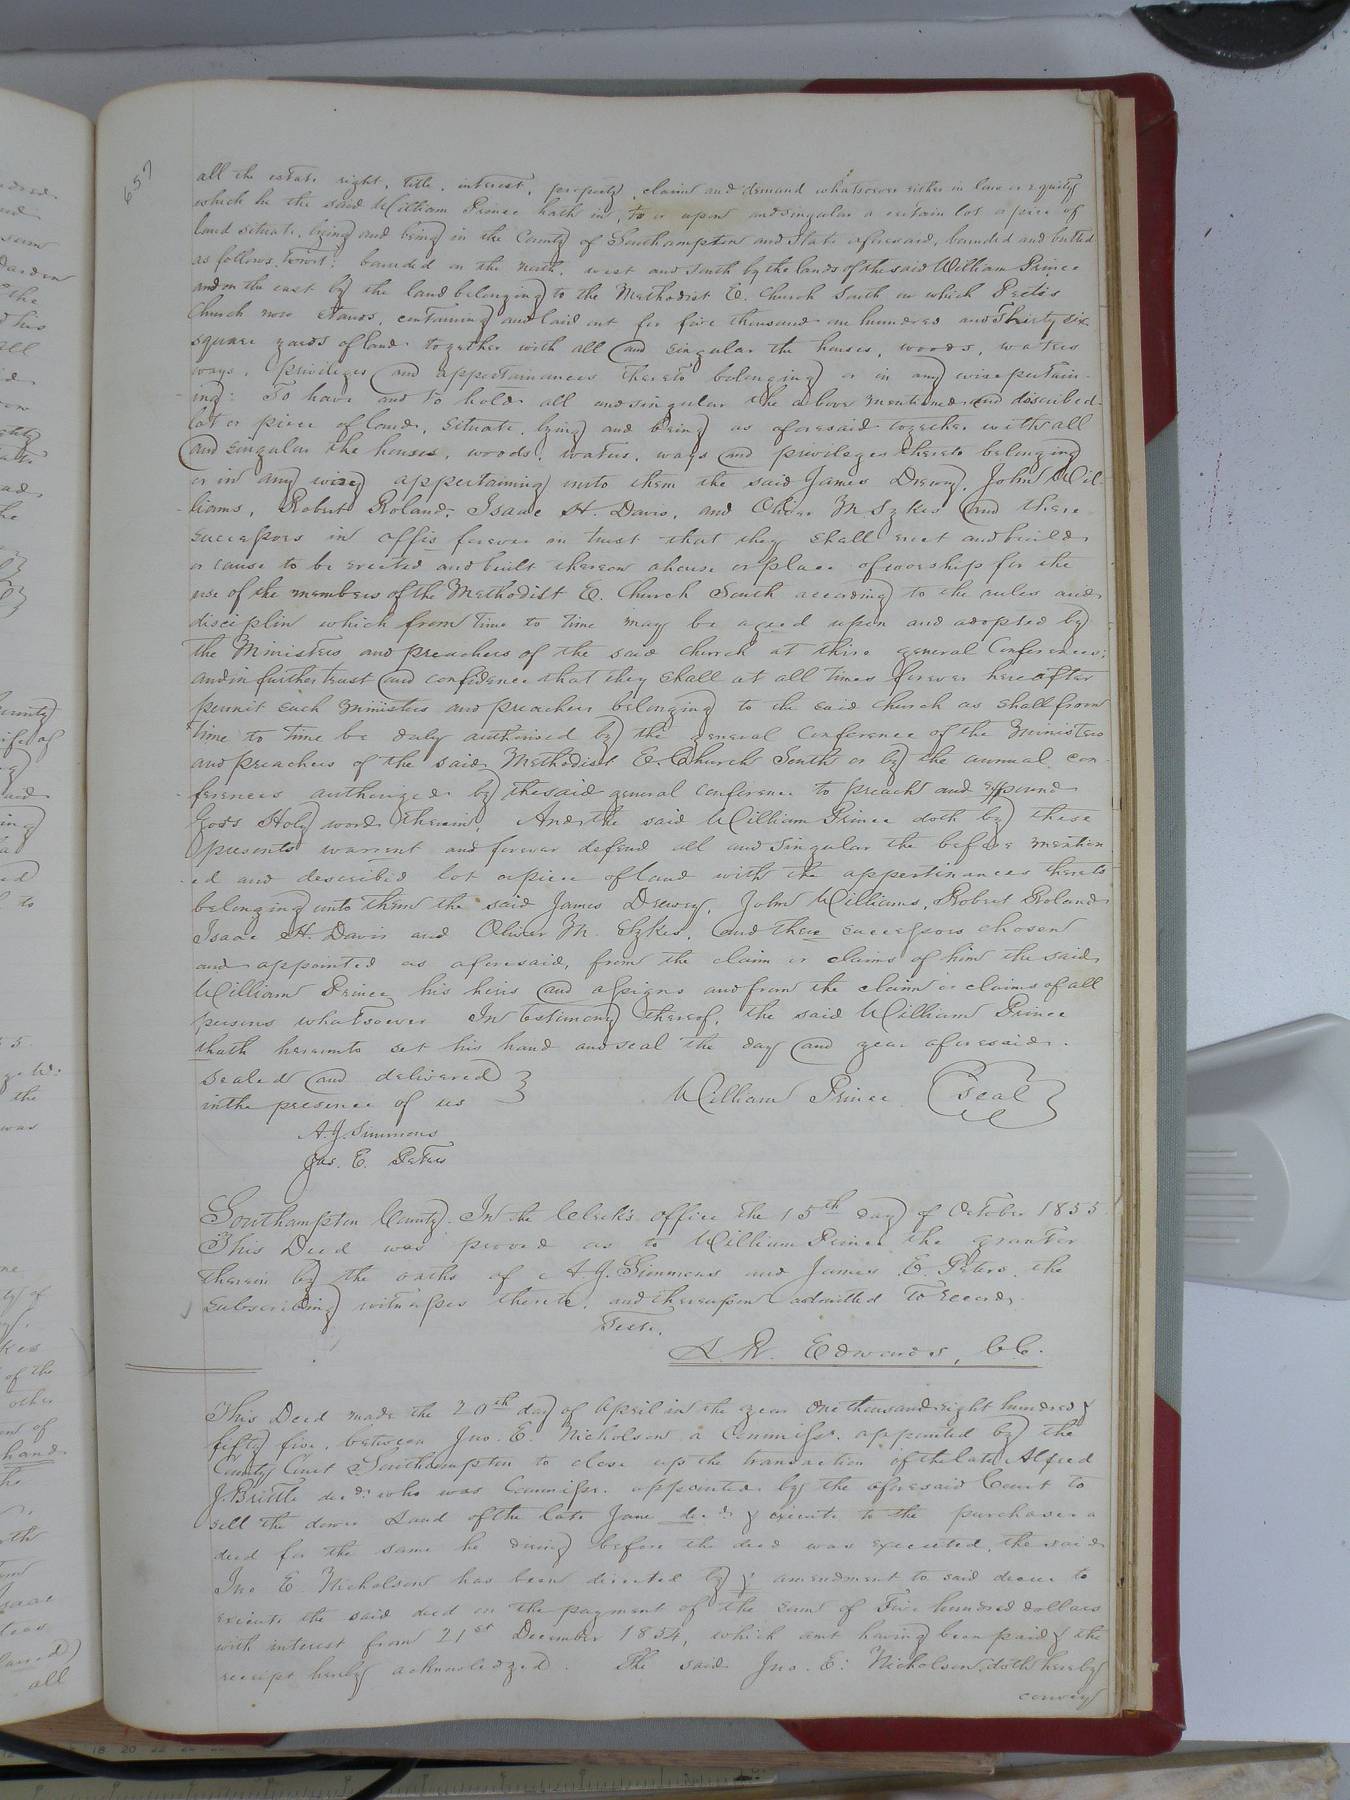 657
all the estate right, title, interest, property, claim and demand whatsoever either in law or equity
which he the said William Prince hath in, to or upon and singular a certain lot or piece of
land situate, lying and being in the County of Southampton and State aforesaid, bounded and butted
as follows, towit: bounded on the north, west and south by the lands of the said William Prince
and on the east by the land belonging to the Methodist E. Church South on which
Church now stands, containing and laid out for five thousand one hundred and Thirty six
square yards of land together with all and singular the houses, woods, waters
ways, privileges and appertainances thereto belonging or in any wise pertain-
-ing: To have and to hold all and singular the above mentioned and described
lot or piece of land, situate, lying and being as aforesaid together with all
and singular the houses, woods, waters, ways and privileges thereto belonging
or in any wise appertaining unto them the said James Drewry, John Wil-
liams, Robert Roland, Isaac H. Davis, and Oliver M Sykes and there
successors in offis forever in trust that they shall erect and build
or cause to be erected and built thereon a house or place of worship for the
use of the members of the Methodist E. Church South according to the rules and
disciplin which from time to time may be agreed upon and adopted by
the Ministers and preachers of the said church at thire general Conferences;
and in further trust and confidence that they shall at all times forever hereafter
permit such ministers and preachers belonging to the said church as shall from
time to time be duly authorised by the general Conference of the Ministers
and preachers of the said Methodist E. Church South or by the annual con-
-ferences authorized by the said general conference to preach and expound
God's Holy word therein, And the said William Prince doth by these
presents warrent and forever defend all and singular the before mention
-ed and described lot or piece of land with the appertinances thereto
belonging unto them the said James Drewry, John Williams, Robert Roland
Isaac H. Davis and Oliver M. Sykes, and there successors chosen
and appointed as aforesaid, from the claim or claims of him the said
William Prince his heirs and assigns and from the claim or claims of all
persons whatsoever In testimony thereof, the said William Prince
hath hereunto set his hand and seal the day and year aforesaid.
Sealed and delivered }
in the presence of us William Prince (Seal)
A. J. Simmons
Jas. E. Peters
Southampton County. In the Clerk's office the 15th day of October 1855
This Deed was proved as to William Prince the grantor
therein by the oaths of A. J. Simmons and James E. Peters the
subscribing witnesses thereto, and thereupon admitted to record.
Teste,
L. R. Edwards, C.C.
This Deed made the 20th day of April in the year one thousand eight hundred &
fifty five, between Jno. E. Nicholson a Commissr. appointed by the
County Court Southampton to close up the transaction of the late Alfred
J. Brittle decd. who was Commissr. appointed by the aforesaid Court to
sell the dower Land of the late Jane decd. & execute to the purchaser a
deed for the same he dying before the deed was executed, the said
Jno E Nicholson has been directed by amendment to said decree to
execute the said deed on the payment of the sum of Five hundred dollars
with interest from 21st December 1854, which amt having been paid & the
receipt hereby acknowledged. The said Jno. E. Nicholson doth hereby
convey